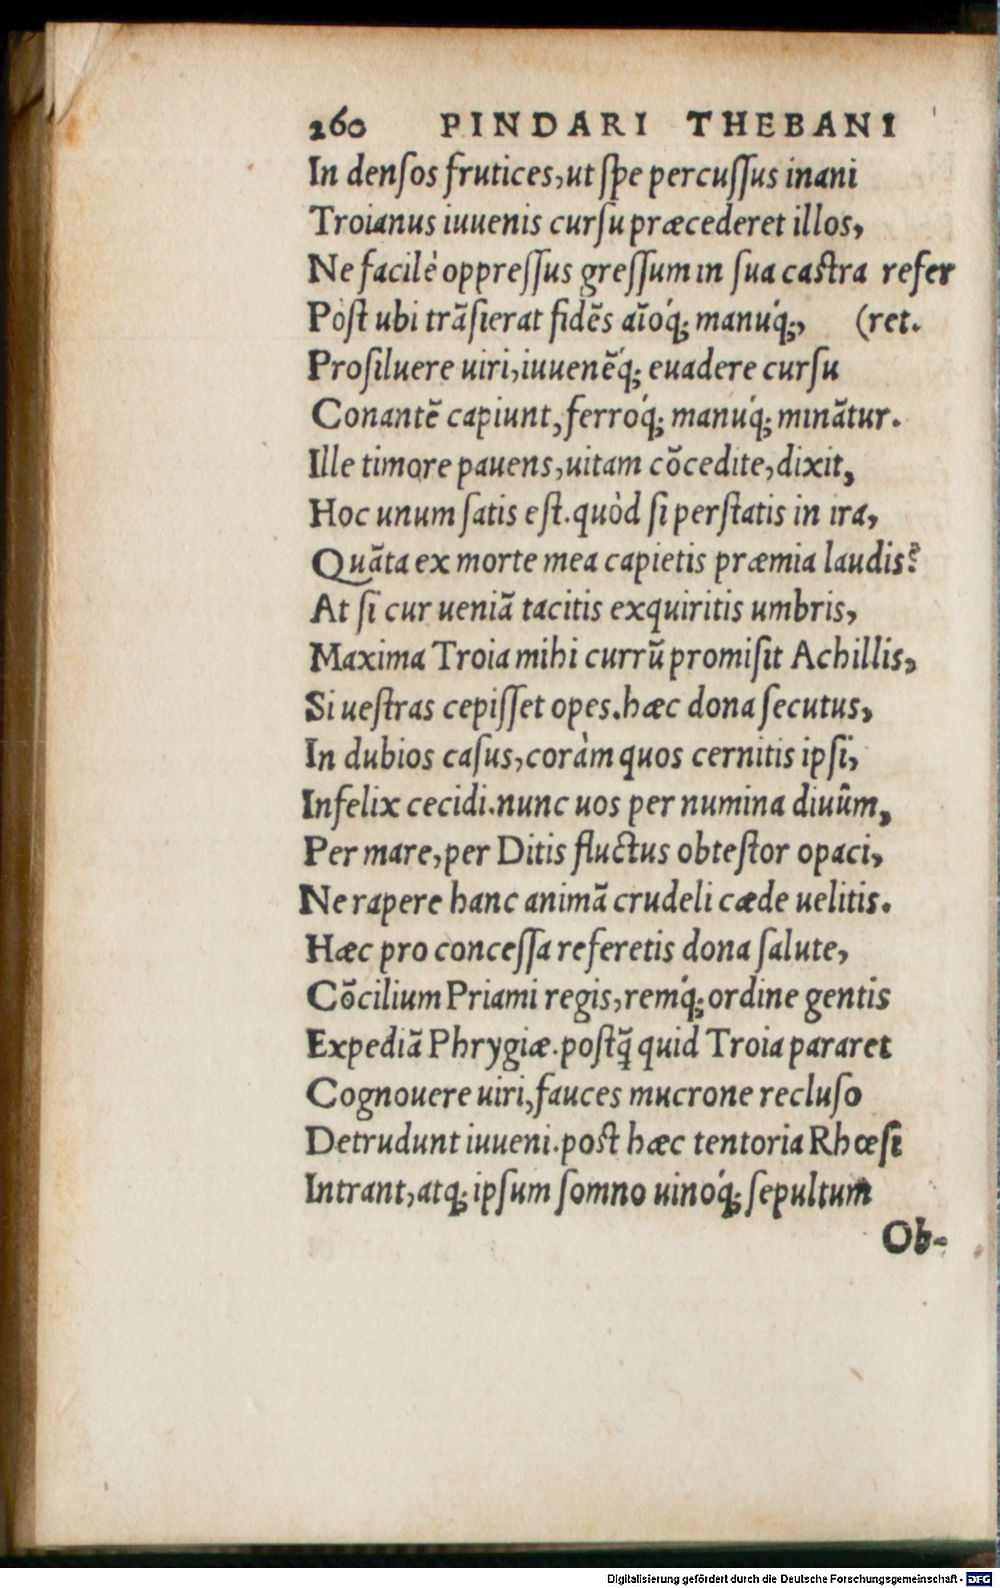 260 PINDARI THEBANI
In denſos frutices, ut ſpe percuſſus inani
Troianus iuuenis curſu præcederet illos,
Ne facilè oppreſſus greſſum in ſua caſtra refer
Pòſt ubi trãſierat fidẽs aĩóq́; manuq́;, (ret.
Proſiluere uiri, iuuenẽq́; euadere curſu
Conantẽ capiunt, ferroq́; manuq́; minãtur.
Ille timore pauens, uitam cõcedite, dixit,
Hoc unum ſatis eſt. quòd ſi perſtatis in ira,
Quãta ex morte mea capietis præmia laudis?
At ſi cur ueniã tacitis exquiritis umbris,
Maxima Troia mihi currũ promiſit Achillis,
Si ueſtras cepiſſet opes. hæc dona ſecutus,
In dubios caſus, coràm quos cernitis ipſi,
Infelix cecidi. nunc uos per numina diuûm,
Per mare, per Ditis fluctus obteſtor opaci,
Ne rapere hanc animã crudeli cæde uelitis.
Hæc pro conceſſa referetis dona ſalute,
Cõcilium Priami regis, remq́; ordine gentis
Expediã Phrygiæ. poſtq̃ quid Troia pararet
Cognouere uiri, fauces mucrone recluſo
Detrudunt iuueni. poſt hæc tentoria Rhœſi
Intrant, atq; ipſum ſomno uinoq́; ſepultum
Ob-
Digitalisierung gefördert durch die Deutsche Forschungsgemeinschaft - DFG